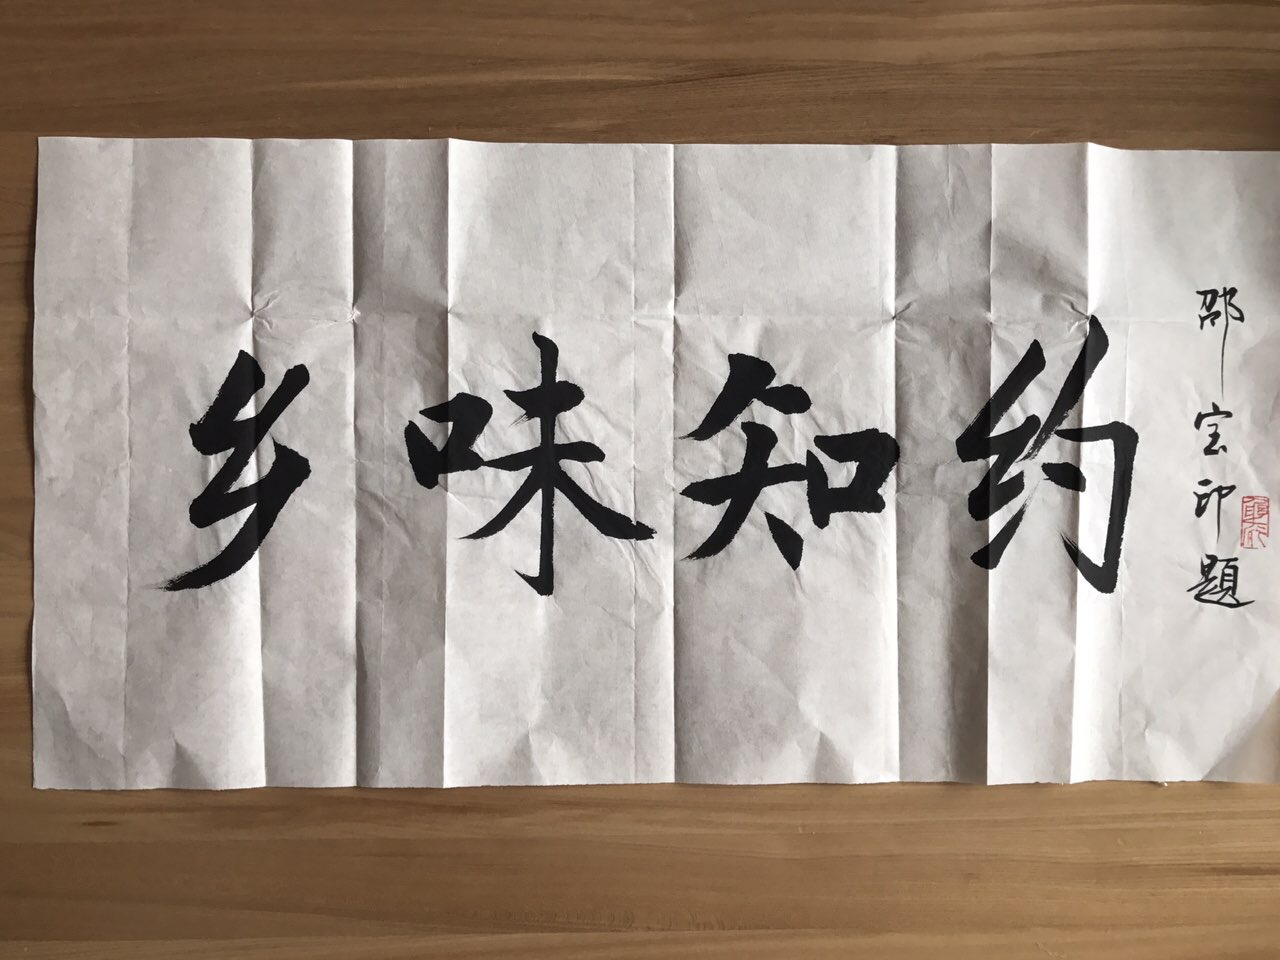 乡味知约
邵宝印题